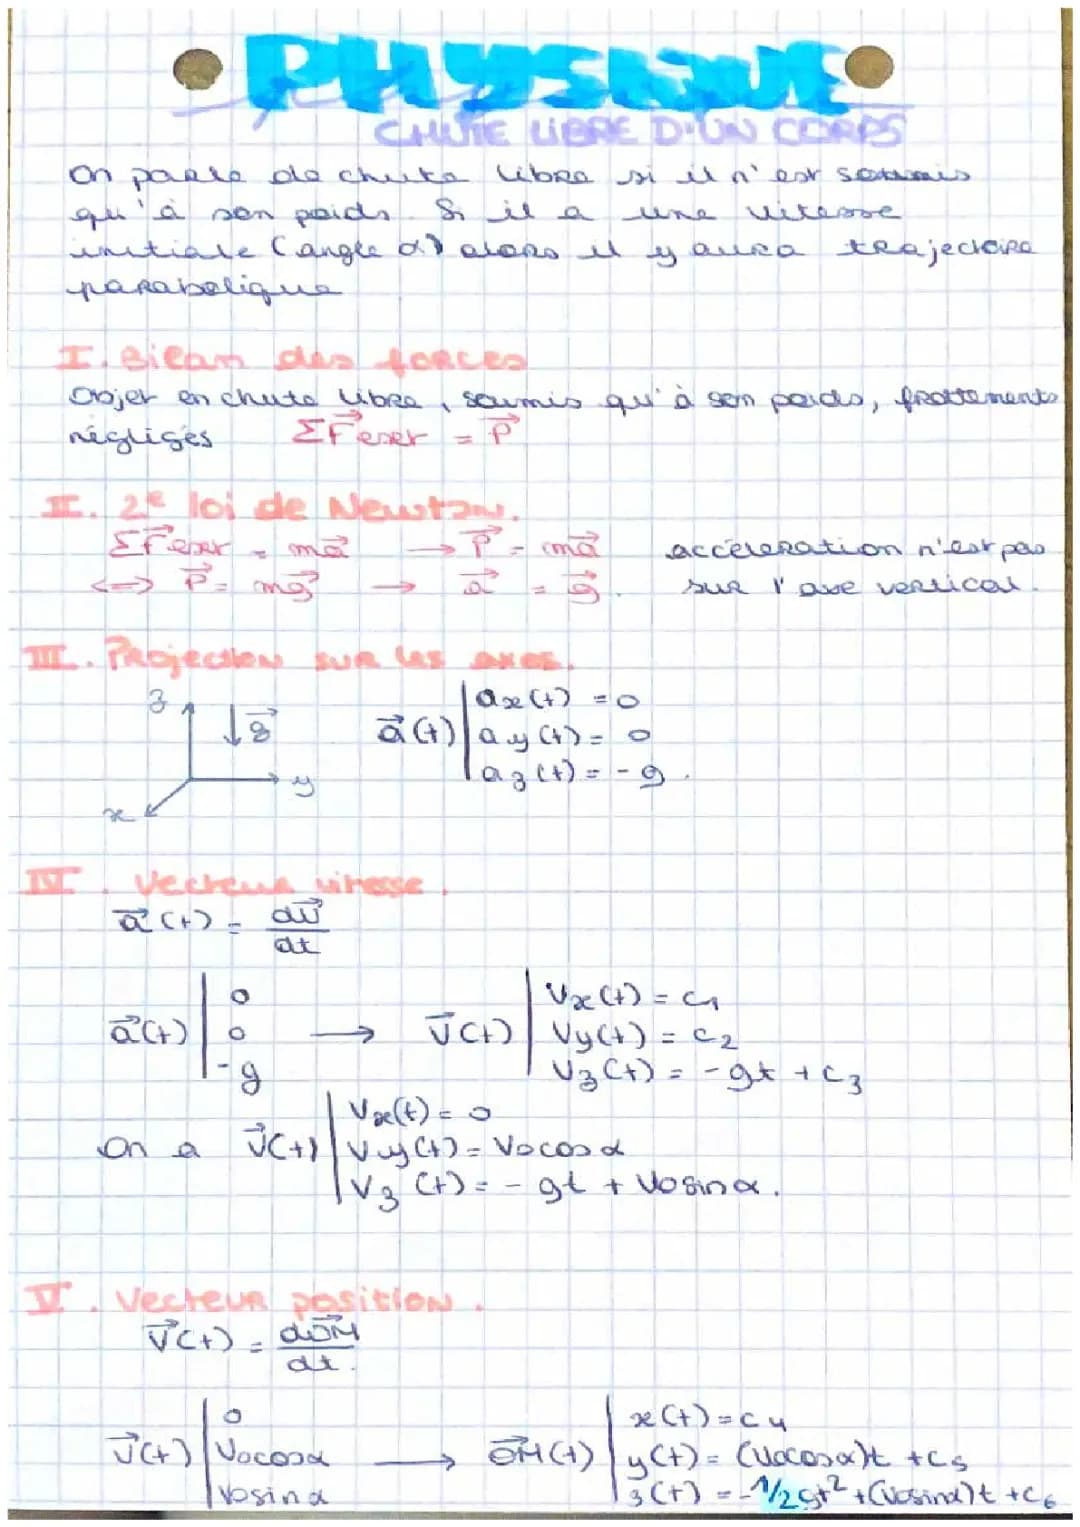 PHYSIQUE
CHUTE LIBRE D'UN CORPS
On parle de chute libre si il n'est soumis
qu'à son poids. Si il a une vitesse
initiale (angle α) alors il y aura trajectoire
parabolique
I. Bilan des forces
Objet en chute libre, soumis qu'à son poids, frottements
négligés ΣF⃗exer = P⃗
II. 2e loi de Newton.
ΣF⃗exer = ma⃗ → P⃗ = ma⃗ accéleration n'est pas
<=> P⃗ = mg⃗ → a⃗ = g⃗. sur l'axe vertical.
III. Projection sur les axes.
z g⃗ y x
a⃗(t) | ax(t) = 0
ay(t) = 0
az(t) = -g.
IV. Vecteur vitesse.
a⃗(t) = dv⃗/dt
a⃗(t) | 0 0 -g → v⃗(t) | Vx(t) = c1
Vy(t) = c2
Vz(t) = -gt + c3
On a v⃗(t) | Vx(t) = 0
Vy(t) = V0cosα
Vz(t) = -gt + V0sinα.
V. Vecteur position.
v⃗(t) = dOM⃗/dt.
v⃗(t) | 0 V0cosα V0sinα → OM⃗(t) | x(t) = c4
y(t) = (V0cosα)t + c5
z(t) = -1/2gt² + (V0sinα)t + c6